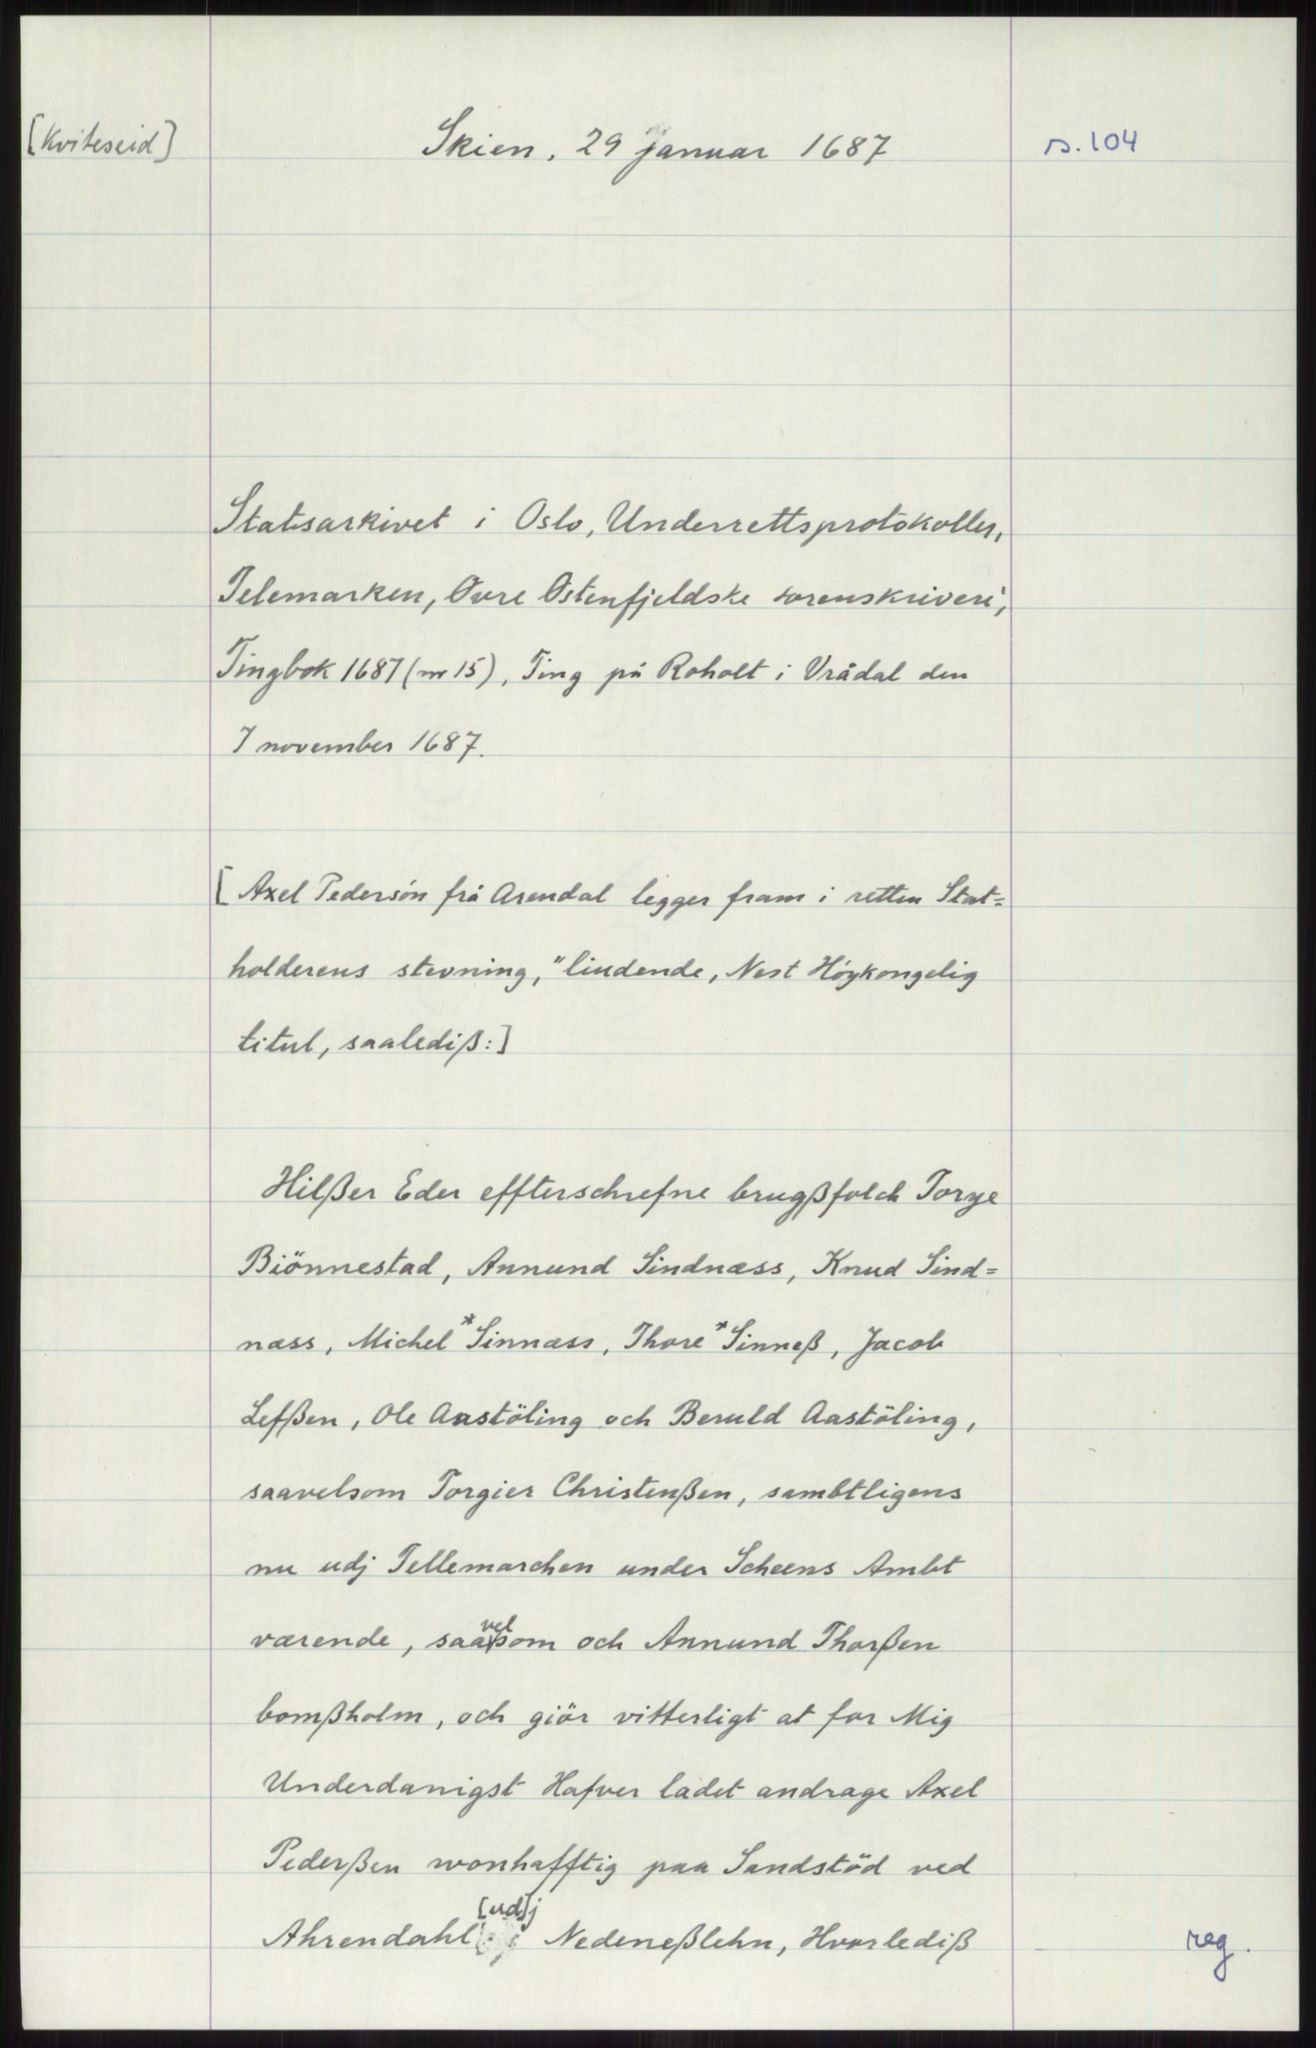 [Kviteseid]
Skien, 29 januar 1687
s. 104
Statsarkivet i Oslo, Underrettsprotokoller,
Telemarken, Øvre Østenfjeldske sorenskriveri,
Tingbok 1687 (nr 15), Ting på Roholt i Vrådal den
7 november 1687.
[Axel Pedersön frå Arendal legger fram i retten Stat=
holderens stevning, "liudende, Nest Höykongelig
titul, saalediß:]
Hilßer Eder effterschrefne brugßfolch Torge
Biönnestad, Annund Sindnæss, Knud Sind=
næss, Michel *Sinnæss, Thore *Sinneß, Jacob
Lefßen, Ole Aastöling och Beruld Aastöling,
saavelsom Torgier Christenßen, sambtligens
nu udj Tellemarchen under Scheens Ambt
værende, saavelsom och Annund Thorßen
bomßholm, och giör vitterligt at for Mig
Underdanigst Hafver ladet andrage Axel
Pederßen wonhafftig paa Sandstöd ved
Ahrendahl [ud]j Nedeneßlehn, Hvorlediß
reg.